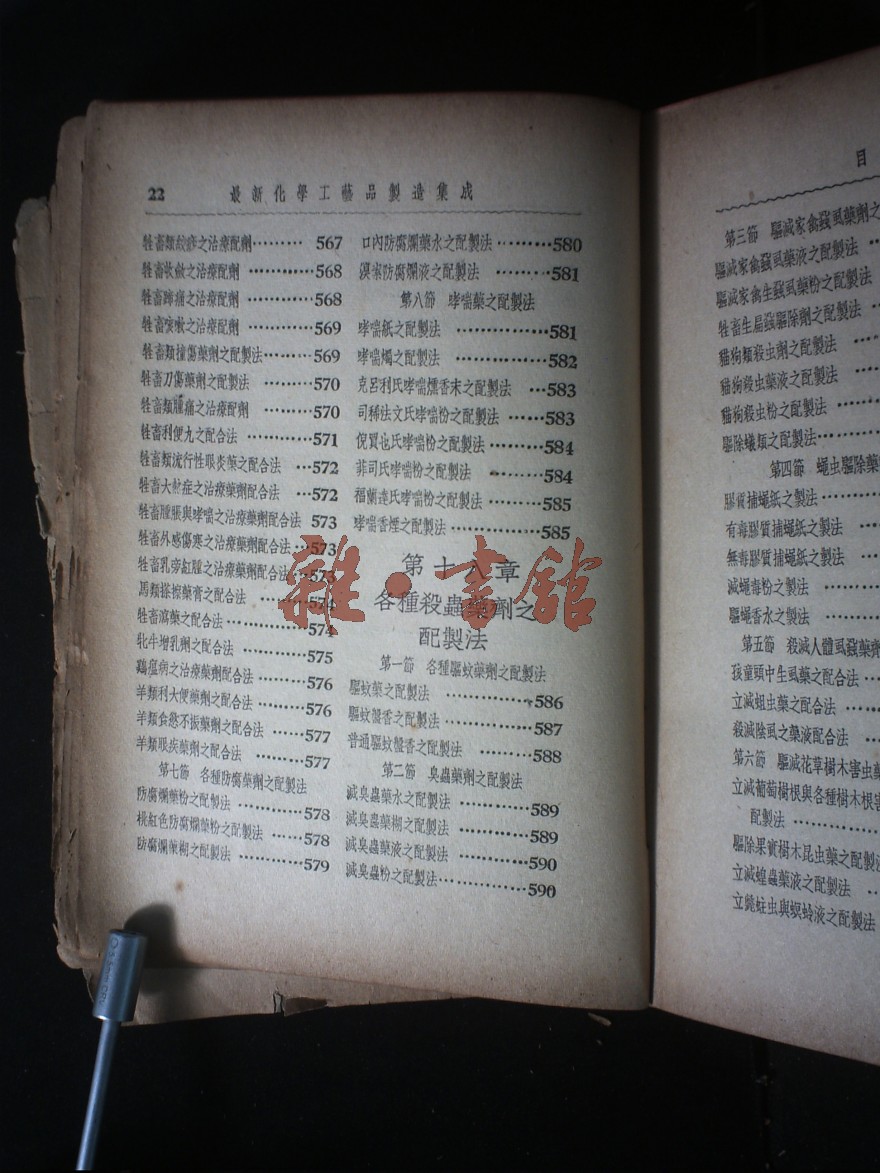 22 最新化學工藝品製造集成
牲畜類疹之治療配劑 567
牲畜收斂之治療配劑 568
牲畜蹄痛之治療配劑 568
牲畜咳嗽之治療配劑 569
牲畜類撞傷藥劑之配製法 569
牲畜刀傷藥劑之配製法 570
牲畜類腫痛之治療配劑 570
牲畜利便九之配合法 571
牲畜類流行性眼炎藥之配合法 572
牲畜大熱症之治療藥劑配合法 572
牲畜腫脹與哮喘之治療藥劑配合法 573
牲畜外感傷寒之治療藥劑配合法 573
牲畜乳旁紅腫之治療藥劑配合法 573
馬類搽擦藥膏之配合法 574
牲畜瀉藥之配合法 574
牝牛增乳劑之配合法 575
鷄瘟病之治療藥劑配合法 576
羊類利大便藥劑之配合法 576
羊類食慾不振藥劑之配合法 577
羊類眼疾藥劑之配合法 577
第七節 各種防腐藥劑之配製法
防腐爛藥粉之配製法 578
桃紅色防腐爛藥粉之配製法 578
防腐爛藥糊之配製法 579
口內防腐爛藥水之配製法 580
漠索防腐爛液之配製法 581
第八節 哮喘藥之配製法
哮喘紙之配製法 581
哮喘燭之配製法 582
克呂利氏哮喘燻香末之配製法 583
司稀法文氏哮喘粉之配製法 583
倪買也氏哮喘粉之配製法 584
菲司氏哮喘粉之配製法 584
福蘭達氏哮喘粉之配製法 585
哮喘香煙之配製法 585
第十八章
各種殺蟲藥劑之
配製法
第一節 各種驅蚊藥劑之配製法
驅蚊藥之配製法 586
驅蚊盤香之配製法 587
普通驅蚊盤香之配製法 588
第二節 臭蟲藥劑之配製法
滅臭蟲藥水之配製法 589
滅臭蟲藥糊之配製法 589
滅臭蟲藥液之配製法 590
滅臭蟲粉之配製法 590
雜·書館
目
第三節 驅滅家禽蝨虱藥劑之
驅滅家禽蝨虱藥液之配製法
驅滅家禽生蝨虱藥粉之配製法
牲畜生扁蝨驅除劑之配製法
貓狗類殺虫劑之配製法
貓狗殺虫藥液之配製法
貓狗殺虫粉之配製法
驅除蟻類之配製法
第四節 蠅虫驅除藥
膠質捕蠅紙之製法
有毒膠質捕蠅紙之製法
無毒膠質捕蠅紙之製法
滅蠅毒粉之製法
驅蠅香水之製法
第五節 殺滅人體虱蝨藥劑
孩童頭中生虱藥之配合法
立滅蛆虫藥之配合法
殺滅陰虱之藥液配合法
第六節 驅滅花草樹木害虫藥
立滅葡萄樹根與各種樹木根害
配製法
驅除果實樹木昆虫藥之配製法
立滅蝗蟲藥液之配製法
立斃蛀虫與螟蛉液之配製法